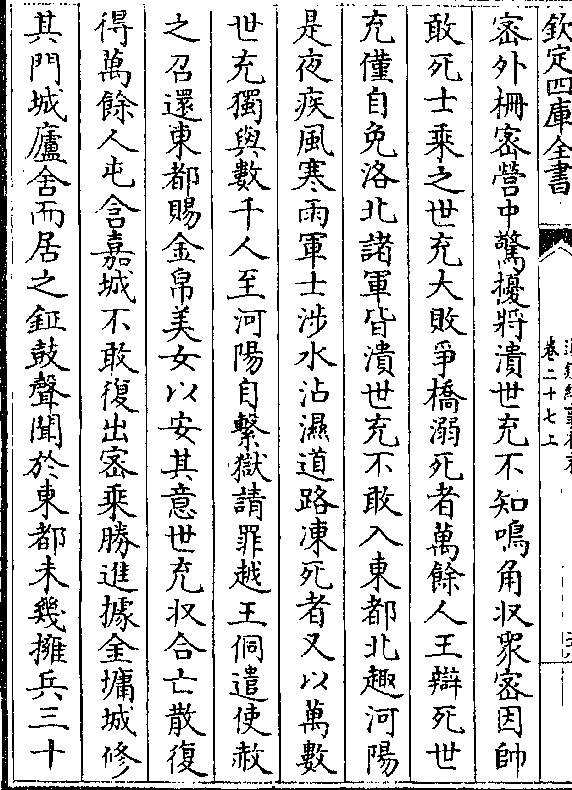 欽定四庫全書
卷二十七上
密外柵密營中驚擾將潰世充不知鳴角收衆密因帥
敢死士乘之世充大敗爭橋溺死者萬餘人王辯死世
充僅自免洛北諸軍皆潰世充不敢入東都北趣河陽
是夜疾風寒雨軍士涉水沾濕道路凍死者又以萬數
世充獨與數千人至河陽自繫獄請罪越王侗遣使赦
之召還東都賜金帛美女以安其意世充収合亡散復
得萬餘人屯含嘉城不敢復出密乘勝進據金墉城修
其門城廬舍而居之鉦鼓聲聞於東都未幾擁兵三十